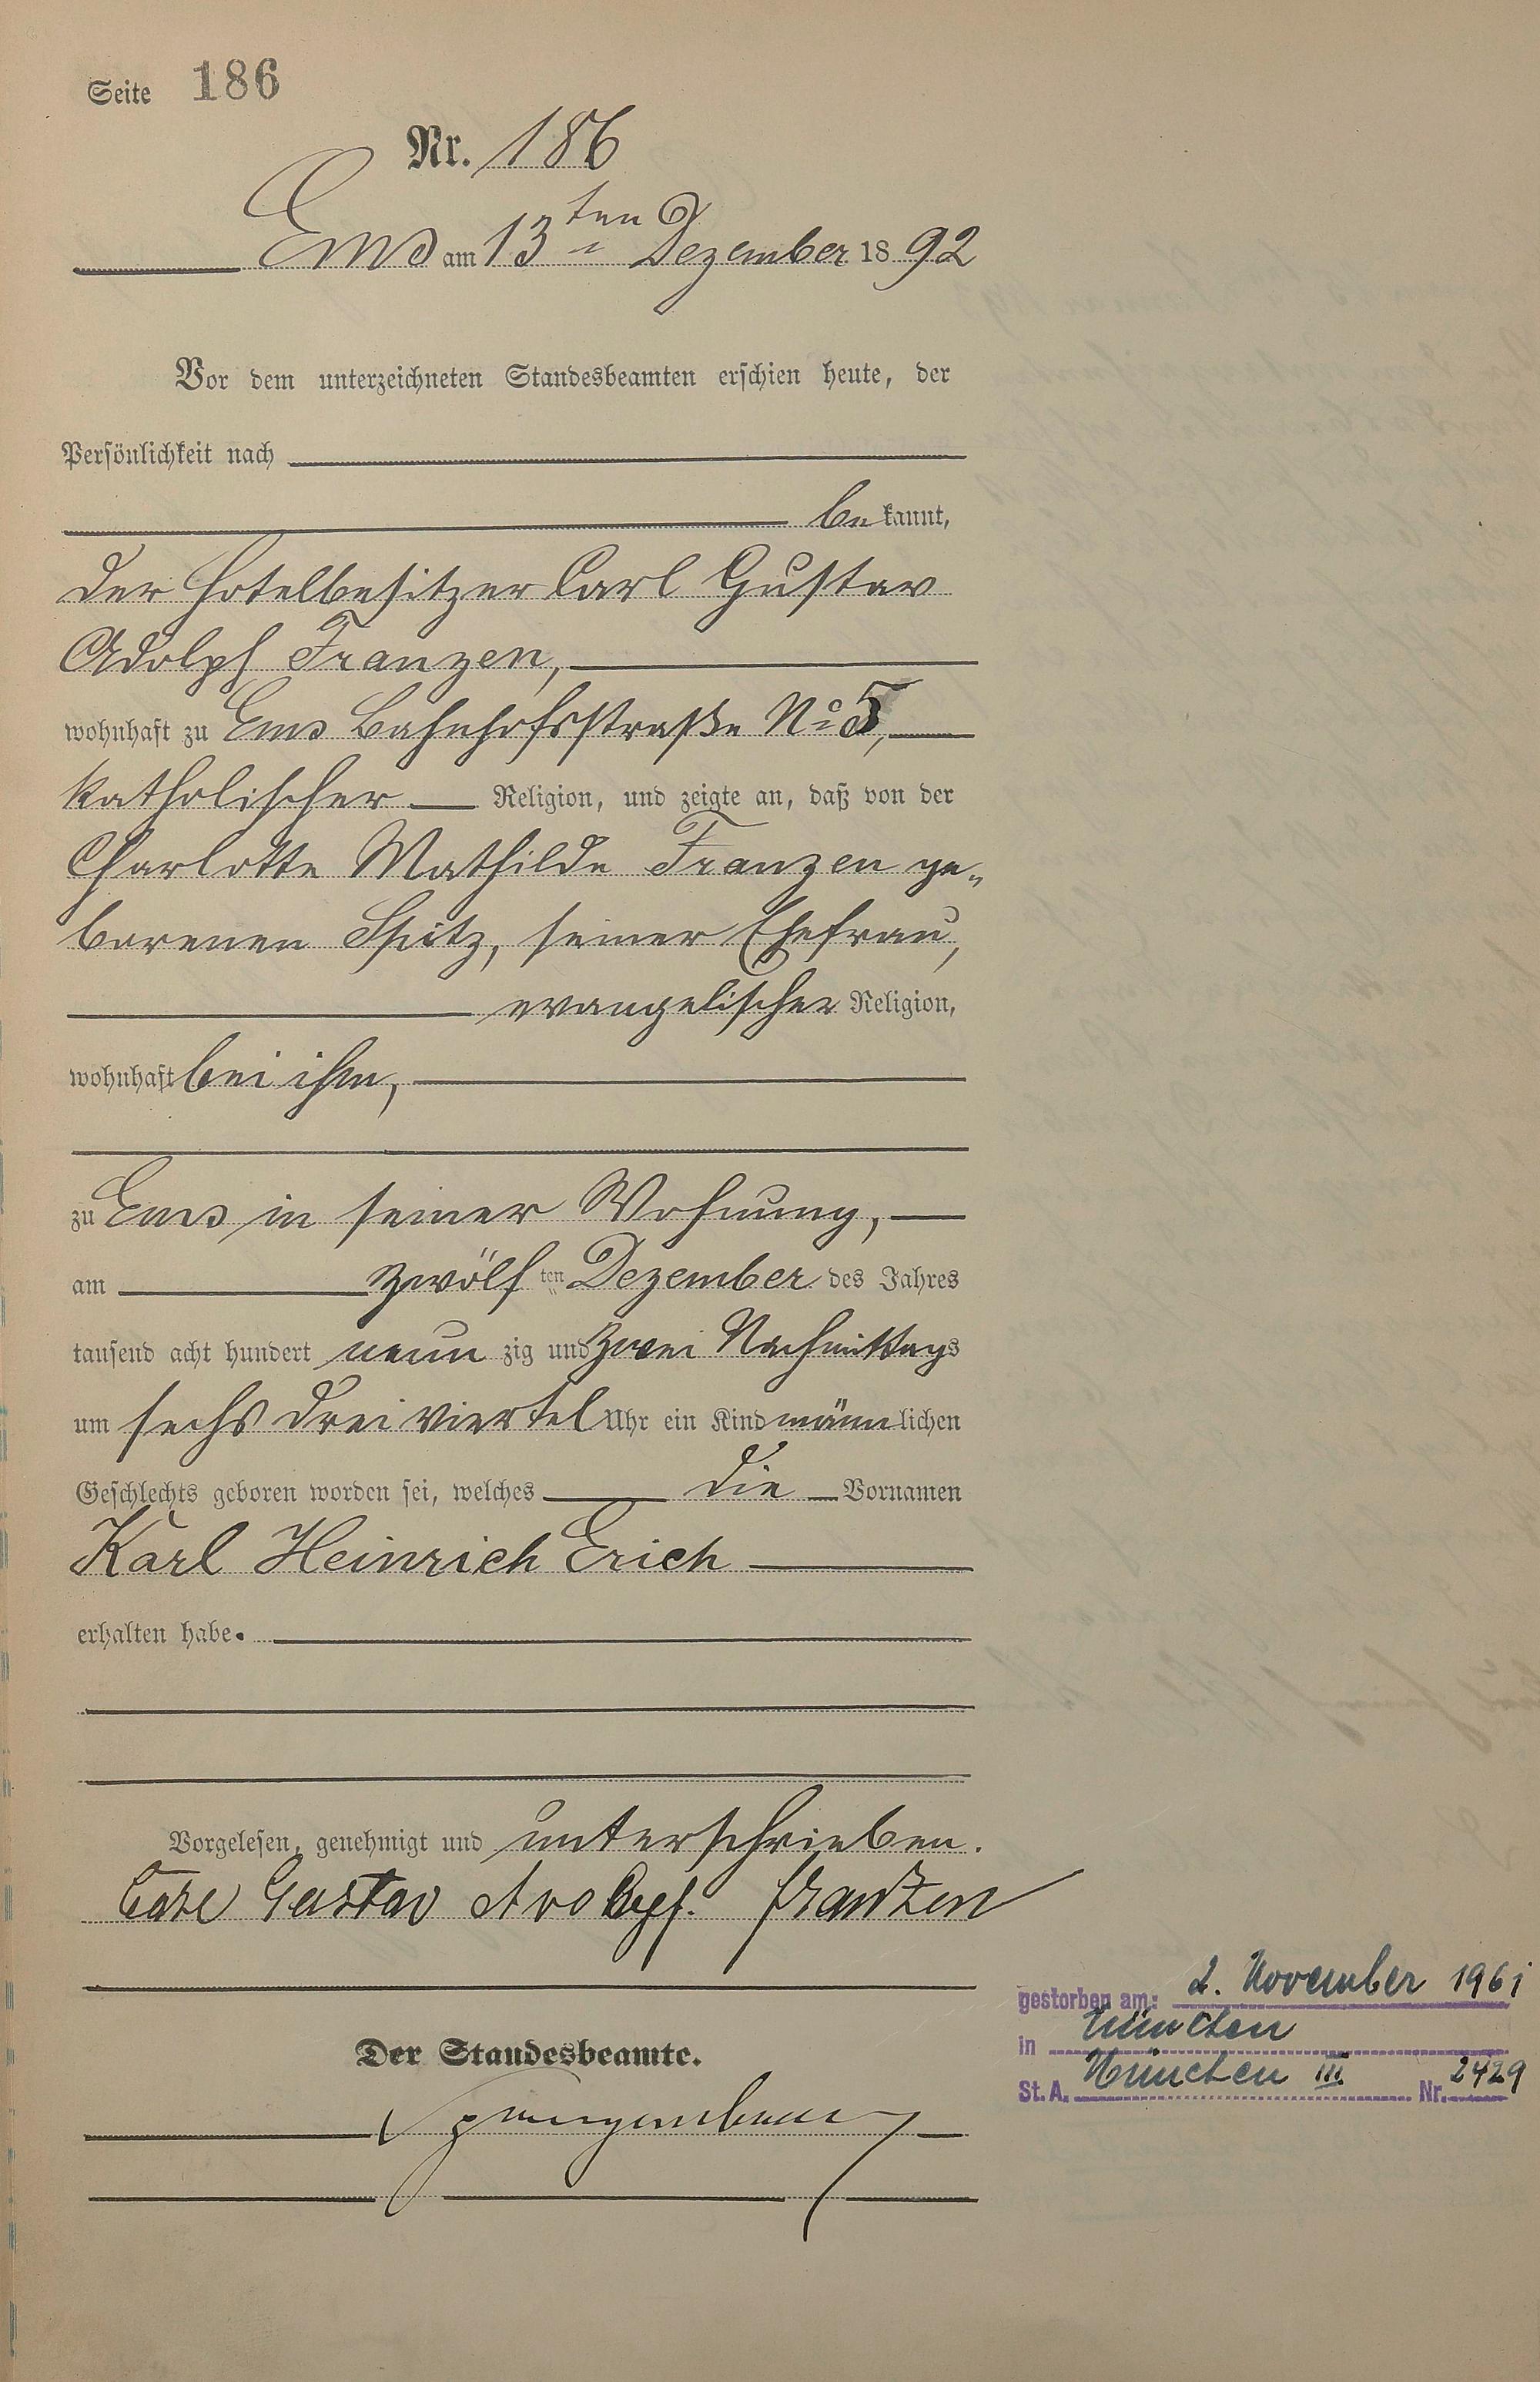 Seite 186
Nr. 186
Ems am 13ten Dezember 1892
Vor dem unterzeichneten Standesbeamten erschien heute, der
Persönlichkeit nach
bekannt,
der Hotelbesitzer Carl Gustav
Adolph Franzen,
wohnhaft zu Ems Bahnhofsstraße No 5,
katholischer Religion, und zeigte an, daß von der
Charlotte Mathilde Franzen ge-
borenen Spitz, seiner Ehefrau,
evangelischer Religion,
wohnhaft bei ihm,
zu Ems in seiner Wohnung,
am zwölften Dezember des Jahres
tausend acht hundert neunzig und zwei Nachmittags
um sechs drei viertel Uhr ein Kind männlichen
Geschlechts geboren worden sei, welches die Vornamen
Karl Heinrich Erich
erhalten habe.
Vorgelesen, genehmigt und unterschrieben.
Carl Gustav Adolph Franzen
Der Standesbeamte.
gestorben am: 2. November 1961
in München
St. A. München III Nr. 2429